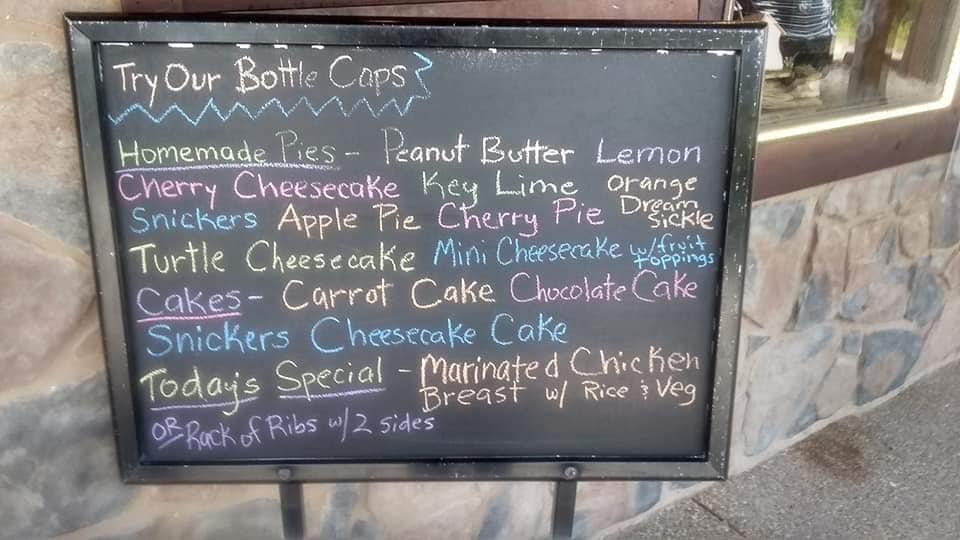 Try Our Bottle Caps
Homemade Pies - Peanut Butter Lemon
Cherry Cheesecake Key Lime Orange Dream Sickle
Snickers Apple Pie Cherry Pie
Turtle Cheesecake Mini Cheesecake w/ fruit toppings
Cakes - Carrot Cake Chocolate Cake
Snickers Cheesecake Cake
Today's Special - Marinated Chicken
Breast w/ Rice & Veg
OR Rack of Ribs w/ 2 sides